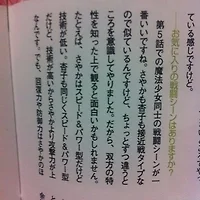 ている感じですけど。
──お気に入りの戦闘シーンはありますか?
第5話の魔法少女同士の戦闘シーンが一
番いいですね。さやかも杏子も接近戦タイプな
ので似ているんですけど、ちょっとずつ違うと
ころを意識してやりました。だから、双方の特
性を知った上で観ると面白いかもしれません。
たとえば、さやかはスピード&パワー型だけど
技術が低い。杏子も同じくスピード&パワー型
だけど、技術が高いからさやかより攻撃力が上
なんです。でも、回復力や防御力はさやかのほ